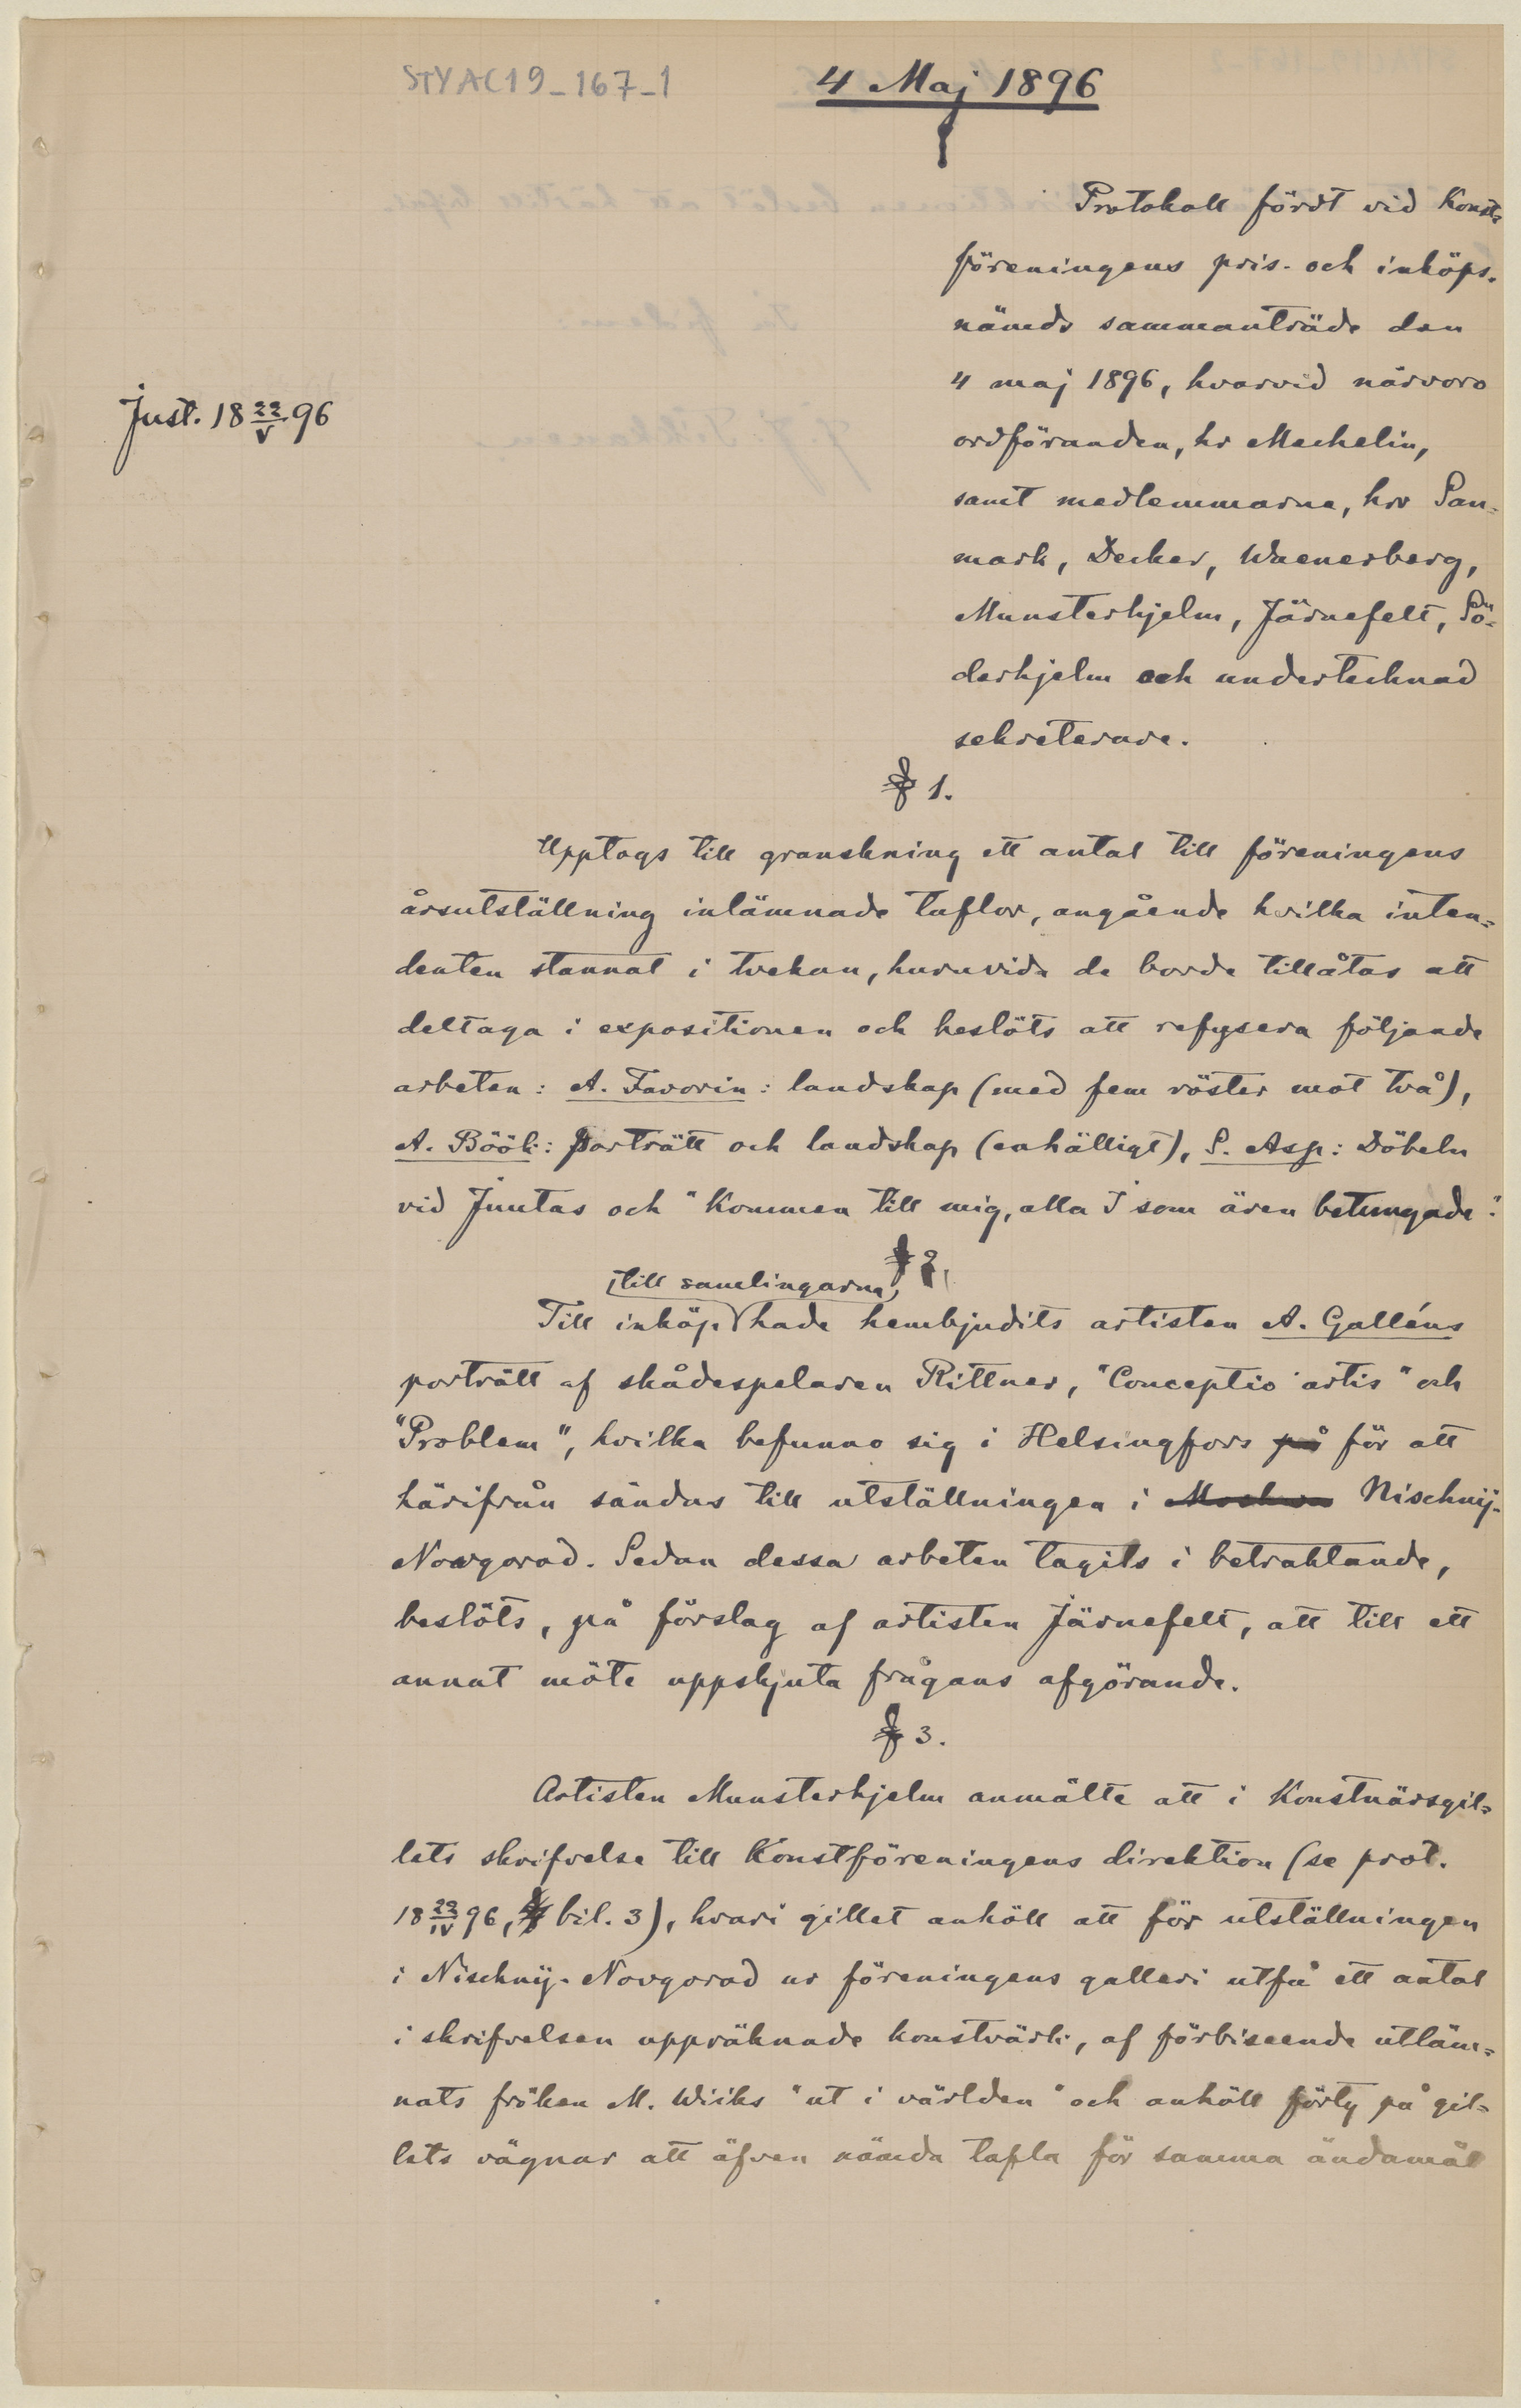 STYAC19_167_1
4 Maj 1896
Just. 18 22/V 96
Protokoll fördt vid Konst-
föreningens pris- och inköps-
nämds sammanträde den
4 maj 1896, hvarvid närvoro
ordföranden, hr Mechelin,
samt medlemmarne, hrr San-
mark, Decker, Waenerberg,
Munsterhjelm, Järnefelt, Sö-
derhjelm och undertecknad
sekreterare.
§ 1.
Upptogs till granskning ett antal till föreningens
årsutställning inlämnade taflor, angående hvilka inten-
denten stannat i tvekan, huruvida de borde tillåtas att
deltaga i expositionen och beslöts att refysera följande
arbeten: A. Favorin: landskap (med fem röster mot två),
A. Böök: Porträtt och landskap (enhälligt), S. Asp: Döbeln
vid Juutas och "Kommen till mig, alla I som ären betungade".
§ 2.
till samlingarna,
Till inköp hade hembjudits artisten A. Galléns
porträtt af skådespelaren Rittner, "Conceptio artis" och
"Problem", hvilka befunno sig i Helsingfors på för att
härifrån sändas till utställningen i Moskwa Nischnij-
Novgorod. Sedan dessa arbeten tagits i betraktande,
beslöts, på förslag af artisten Järnefelt, att till ett
annat möte uppskjuta frågans afgörande.
§ 3.
Artisten Munsterhjelm anmälte att i Konstnärsgil-
lets skrifvelse till Konstföreningens direktion (se prot.
18 23/IV 96, bil. 3), hvari gillet anhöll att för utställningen
i Nischnij-Novgorod ur föreningens galleri utfå ett antal
i skrifvelsen uppräknade konstvärk, af förbiseende utläm-
nats fröken M. Wiiks "ut i världen" och anhöll förty på gil-
lets vägnar att äfven nämda tafla för samma ändamål